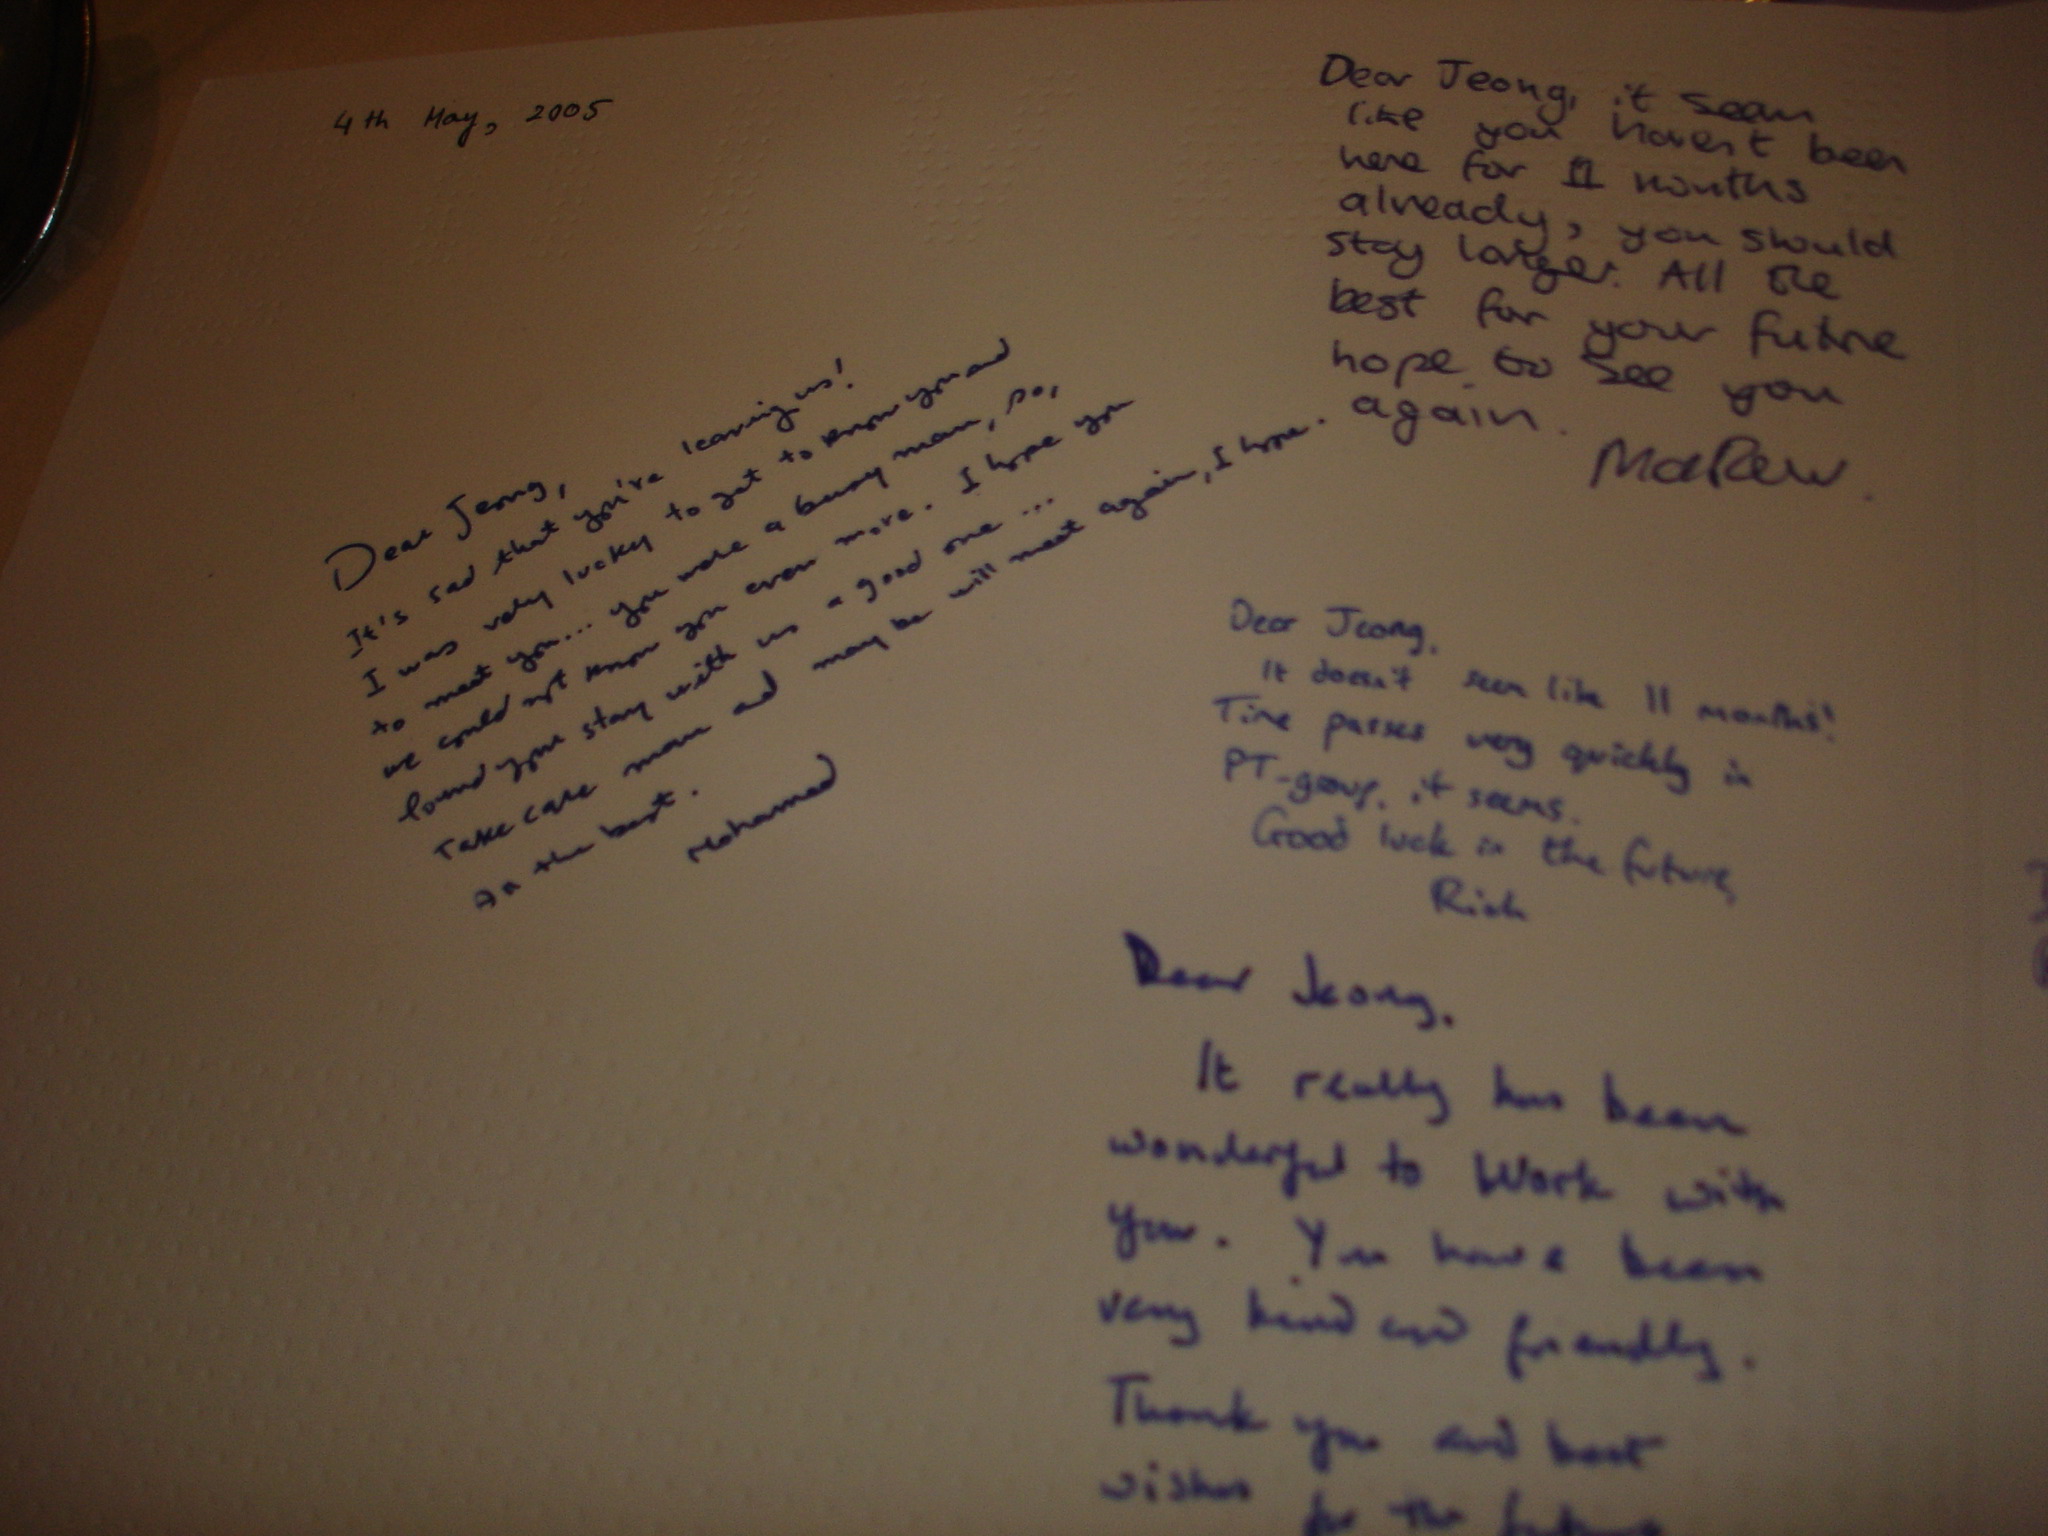 4th May, 2005
Dear Jeong,
It's sad that you're leaving us!
I was very lucky to get to know you and
to meet you... you were a busy man, so,
we could not know you even more. I hope you
found your stay with us a good one ...
Take care man and may be will meet again, I hope.
the best.
Mohamed
Dear Jeong, it seem
like you haven't been
here for 11 months
already, you should
stay longer. All the
best for your future
hope to see you
again.
Dear Jeong,
It doesn't seem like 11 months!
Time passes very quickly in
PT-group, it seems.
Good luck in the future,
Rich
Dear Jeong.
It really has been
wonderful to work with
you. You have been
very kind and friendly.
Thank you and best
wishes for the future